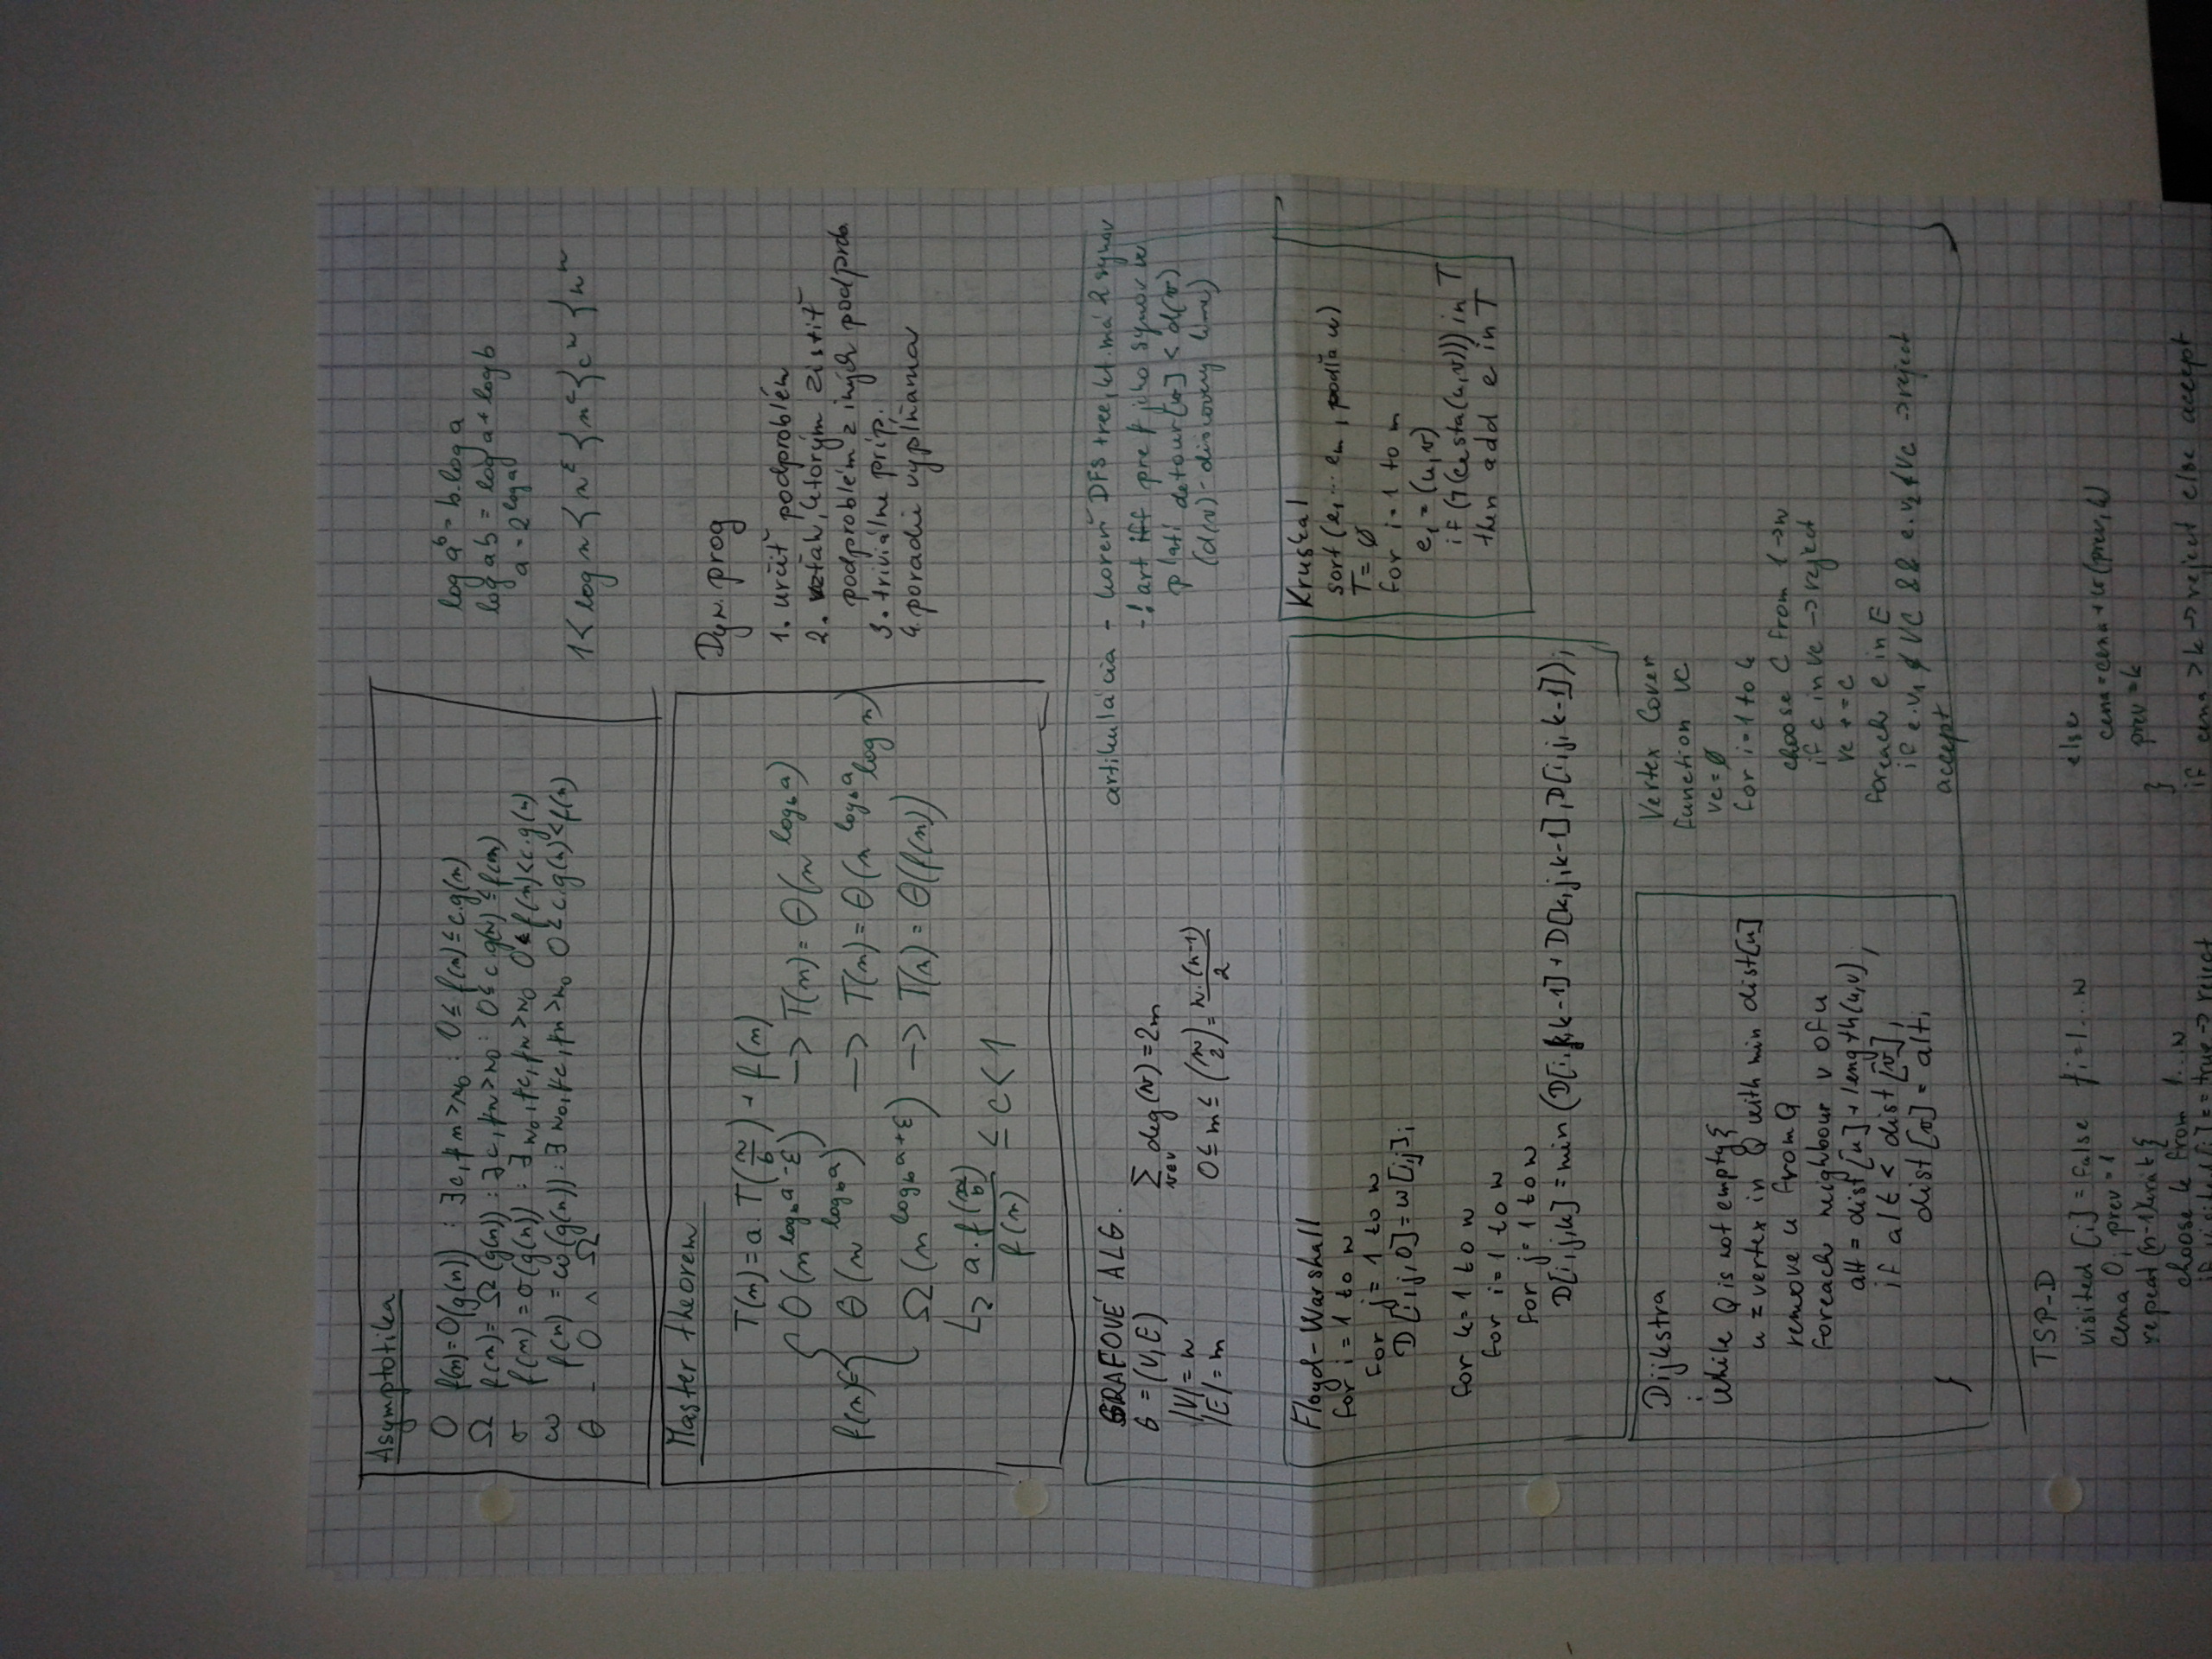 Asymptotika
O f(n) = O(g(n)) : ∃c, ∀n>n₀ : 0 ≤ f(n) ≤ c.g(n)
Ω f(n) = Ω(g(n)) : ∃c, ∀n>n₀ : 0 ≤ c.g(n) ≤ f(n)
σ f(n) = σ(g(n)) : ∃n₀, ∀c, ∀n>n₀ 0 ≤ f(n) < c.g(n)
ω f(n) = ω(g(n)) : ∃n₀, ∀c, ∀n>n₀ 0 ≤ c.g(n) < f(n)
θ - O ∧ Ω
log aᵇ = b.log a
log ab = log a + log b
a = 2^(log a)
1 < log n < n^ε < n^c < c^n < n^n
Master theorem
T(n) = a.T(n/b) + f(n)
f(n) ∈ { O(n^(log_b a - ε)) → T(n) = θ(n^(log_b a))
θ(n^(log_b a)) → T(n) = θ(n^(log_b a) log n)
Ω(n^(log_b a + ε)) → T(n) = θ(f(n))
↳ a.f(n/b) / f(n) ≤ c < 1
Dyn. prog
1. určiť podproblém
2. vzťah, ktorým zistiť
podproblém z iných podprob.
3. triviálne príp.
4. poradie vyplňania
GRAFOVÉ ALG.
G = (V, E)
|V| = n
|E| = m
∑ v∈V deg(v) = 2m
0 ≤ m ≤ (n 2) = n.(n-1)/2
artikulácia - koreň DFS tree, kt. má 2 synov
- ! art iff pre ∀ jeho synov w
platí detour[w] < d(v)
Floyd-Warshall
for i = 1 to n
for j = 1 to n
D[i,j,0] = w[i,j];
for k = 1 to n
for i = 1 to n
for j = 1 to n
D[i,j,k] = min (D[i,k,k-1] + D[k,j,k-1], D[i,j,k-1]);
Kruskal
sort (e₁ ... em, podľa w)
T = ∅
for i = 1 to m
e₁ = (u,v)
if (¬(cesta(u,v))) in T
then add e in T
Dijkstra
:
while Q is not empty{
u = vertex in Q with min dist[u]
remove u from Q
foreach neighbour v of u
alt = dist[u] + length(u,v);
if alt < dist[v];
dist[v] = alt;
}
Vertex Cover
function VC
vc = ∅
for i = 1 to k
choose c from 1 → n
if c in vc → reject
vc += c
foreach e in E
if e.v₁ ∉ VC && e.v₂ ∉ VC → reject
accept
TSP-D
visited [i] = false ∀i = 1...n
cena 0; prev = 1
repeat (n-1)krát{
choose k from 1..n
if visited[i] == true → reject
else
cena = cena + w(prev,k)
prev = k
}
if cena > k → reject else accept